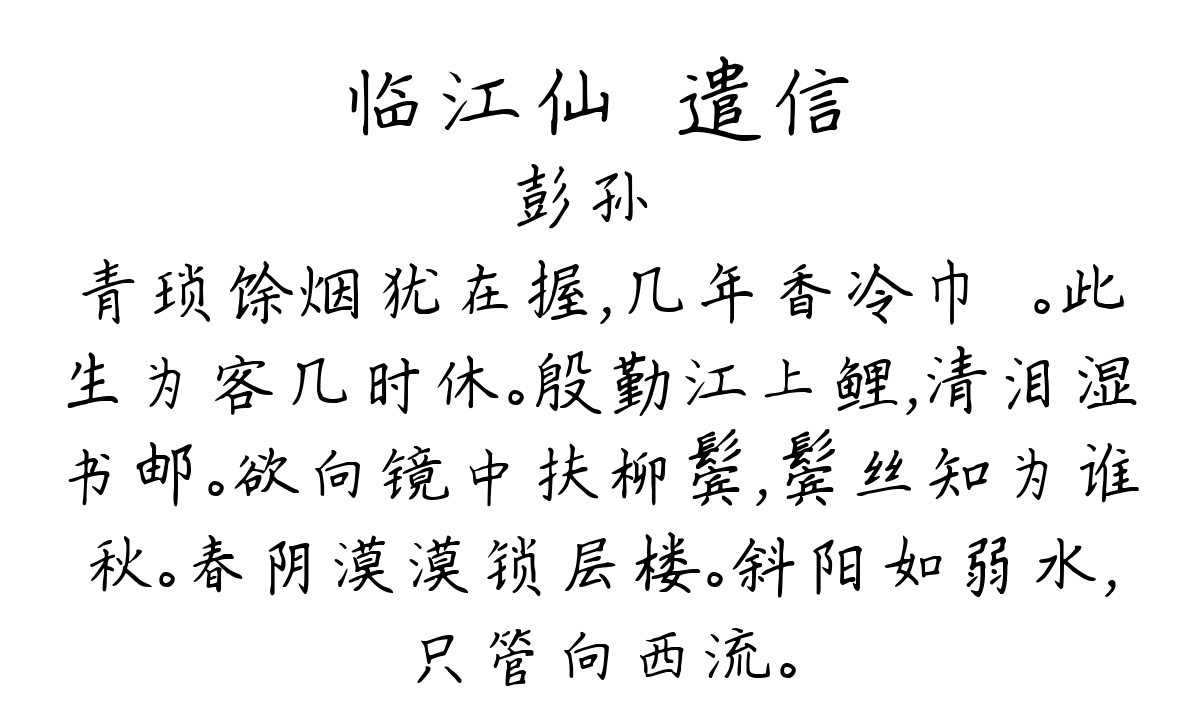 临江仙 遣信
彭孙
青琐馀烟犹在握,几年香冷巾 。此
生为客几时休。殷勤江上鲤,清泪湿
书邮。欲向镜中扶柳鬓,鬓丝知为谁
秋。春阴漠漠锁层楼。斜阳如弱水,
只管向西流。